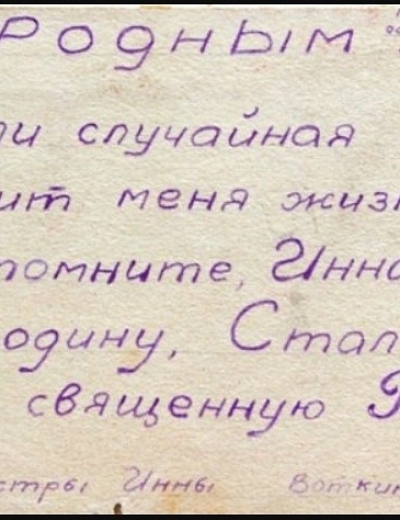 Родным
ти случайная
ит меня жизн
помните, Инна
одину, Стал
священную
стры Инны Воткин